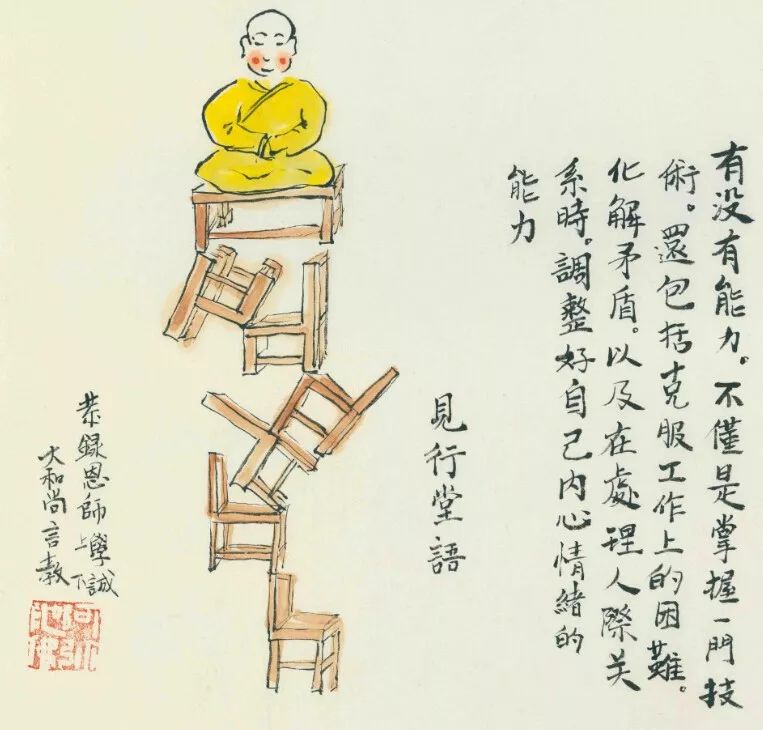 有没有能力。不僅是掌握一門技
術。還包括克服工作上的困難。
化解矛盾。以及在處理人際关
系時。調整好自己内心情緒的
能力
見行堂語
恭録恩師上學下誠
大和尚言教